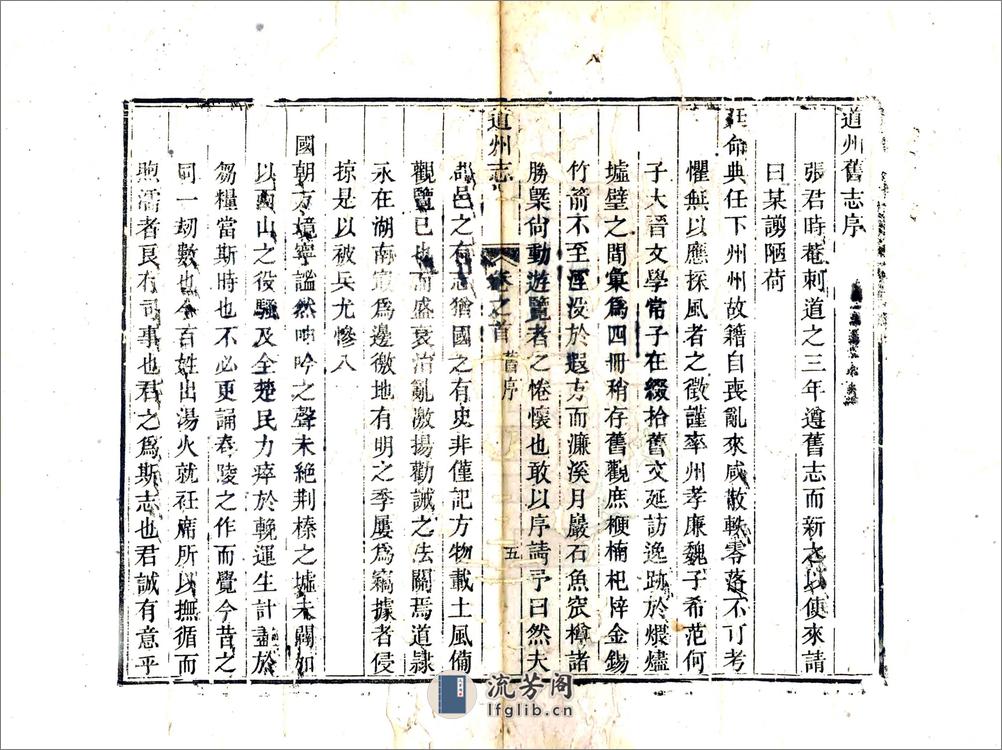 道州舊志序
張君時菴刺道之三年遵舊志而新之以使來請
曰某謭陋荷
廷命典任下州州故籍自喪亂來咸散軼零落不可考
懼無以應採風者之徵謹率州孝廉魏子希范何
子大晉文學常子在綴拾舊文延訪逸跡於煨燼
墟壁之間彙爲四冊稍存舊觀庶楩楠杞梓金錫
竹箭不至湮没於遐方而濂溪月巖石魚窊樽諸
勝槩尙動遊覽者之惓懷也敢以序請予曰然夫
道州志
卷之首 舊序 五
郡邑之有志猶國之有史非僅記方物載土風備
觀覽已也而盛衰治亂激揚勸誡之法關焉道隸
永在湖南最爲邊徼地有明之季屢爲竊據者侵
掠是以被兵尤慘入
國朝方嬉寧謐然呻吟之聲未絶荆榛之墟未闢加
以西山之役騷及全楚民力瘁於輓運生計盡於
芻糧當斯時也不必更誦舂陵之作而覺今昔之
同一刼數也今百姓出湯火就衽席所以撫循而
煦濡者良有司事也君之爲斯志也君誠有意乎
流芳阁
lfglib.cn